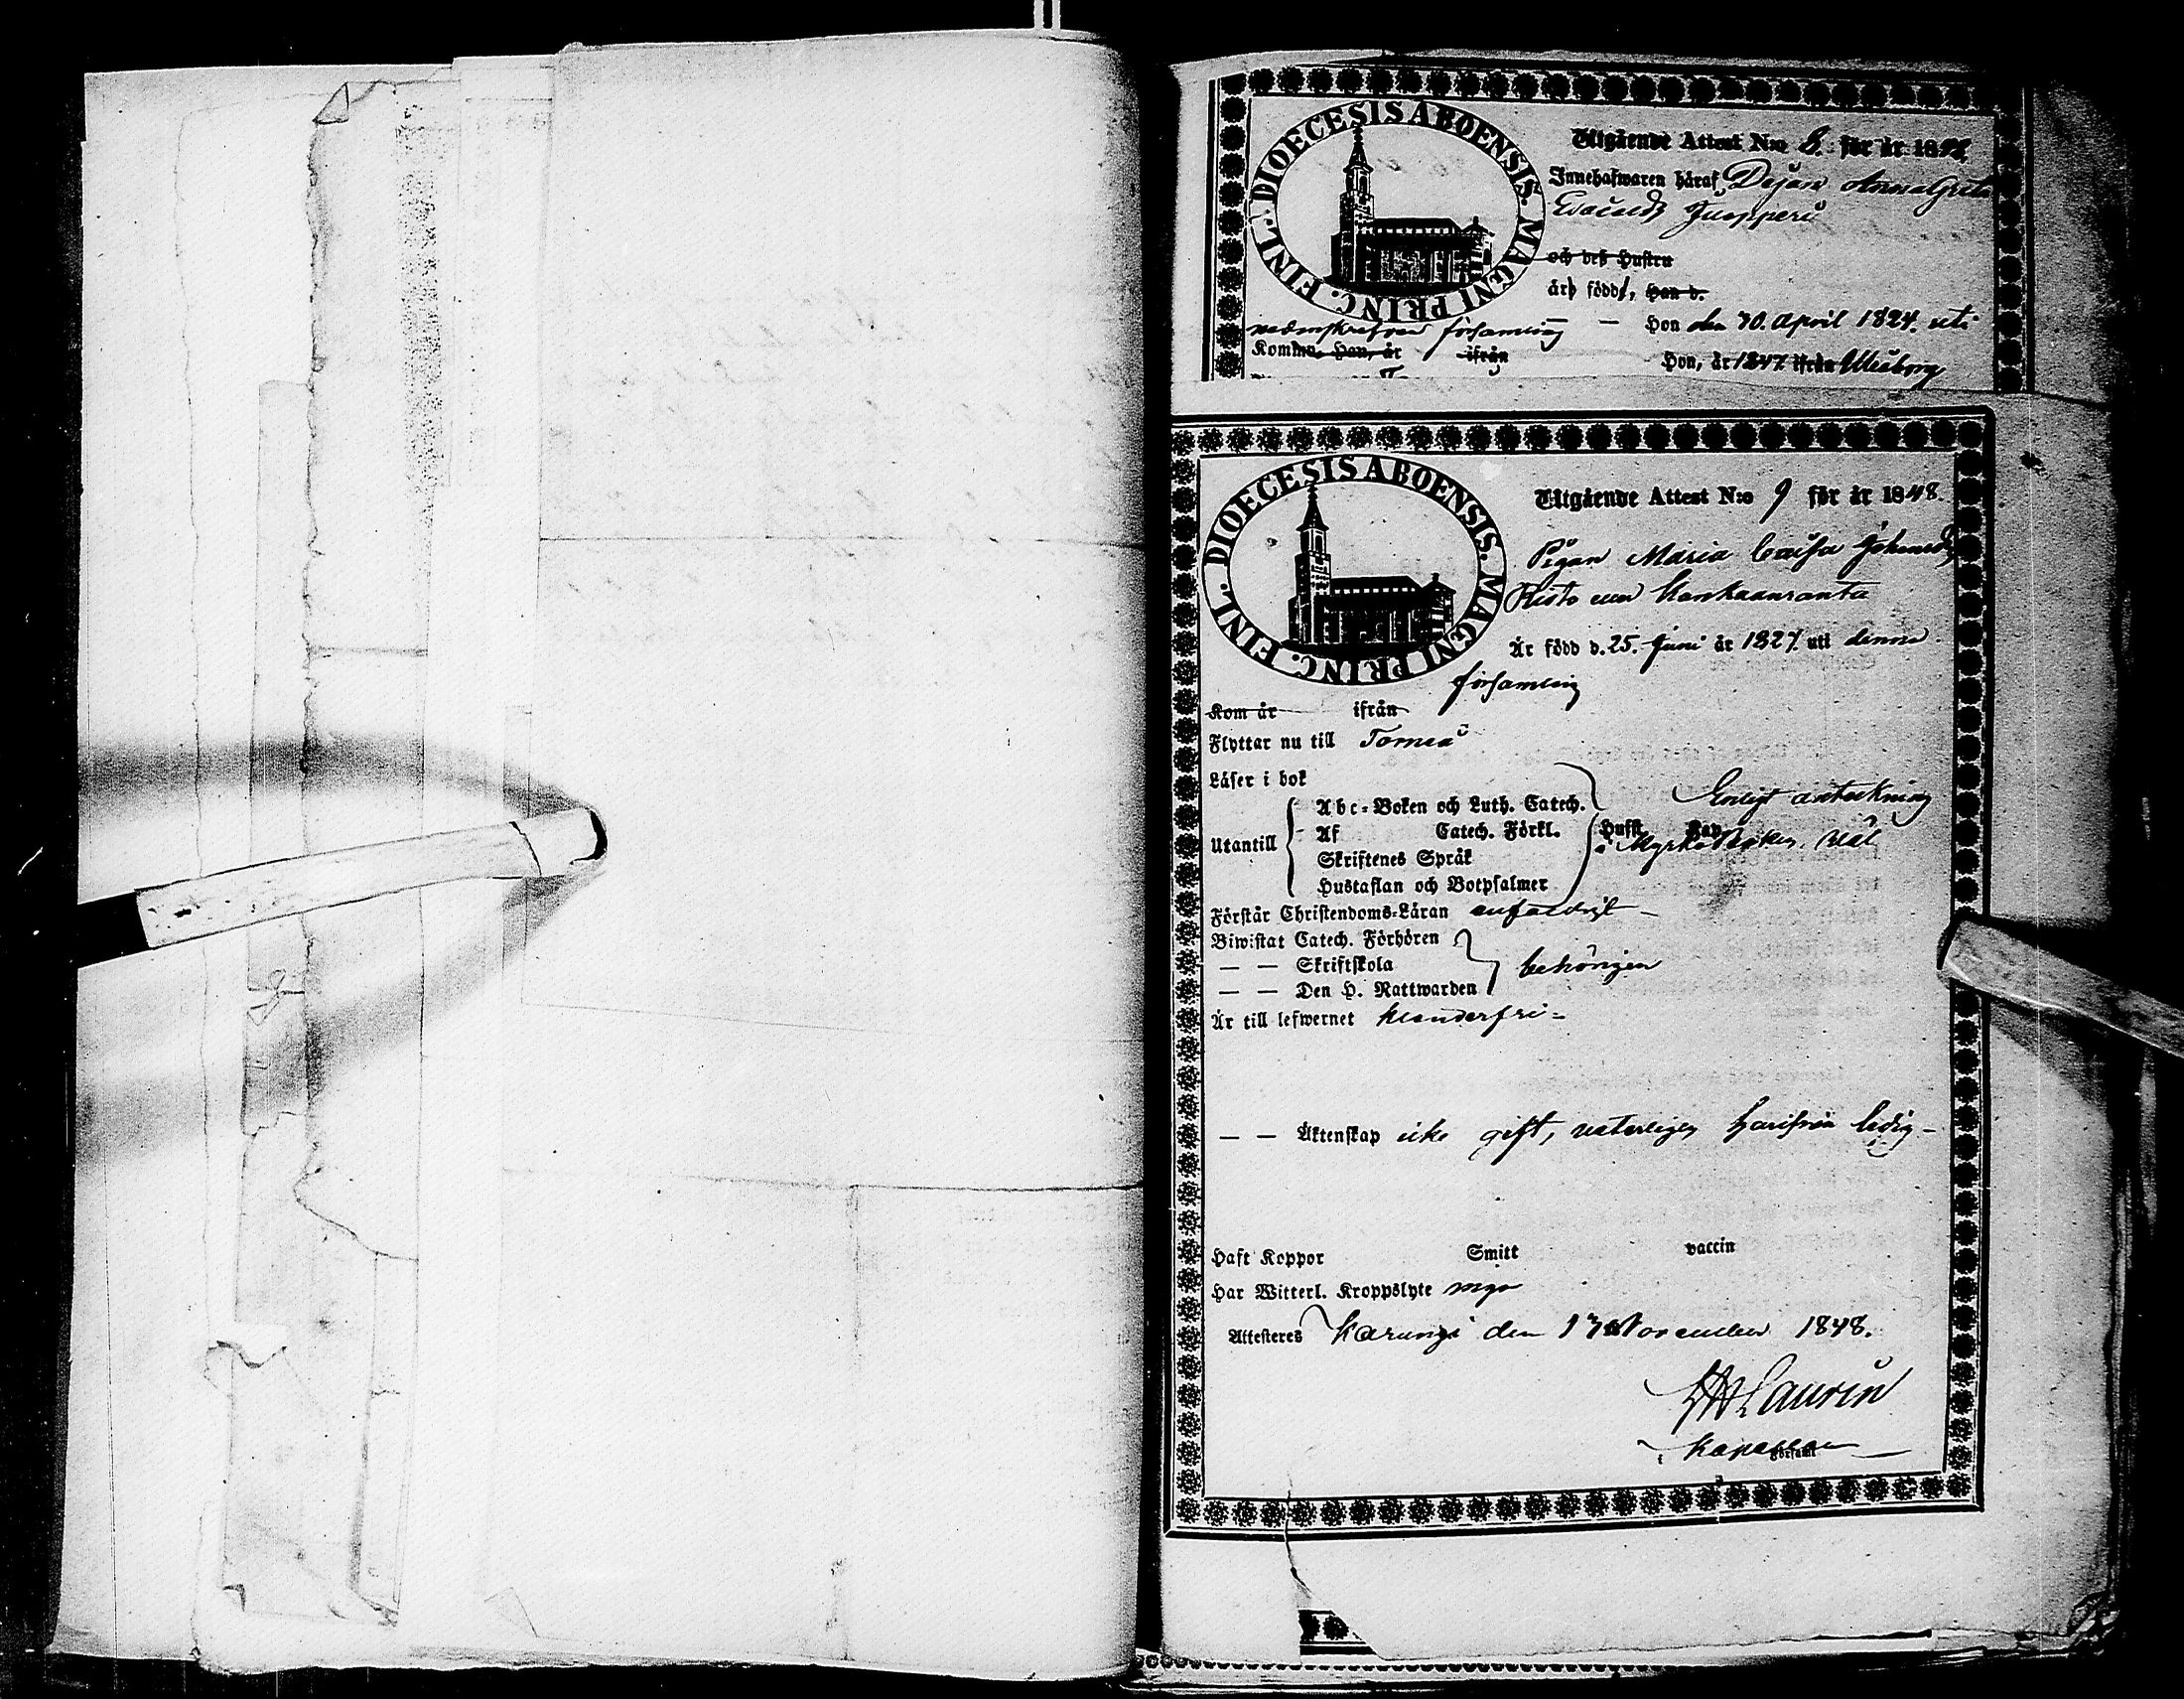 DIOECESIS ABOENSIS. MAGNI PRINC. FINL.
Utgående Attest N:o 8. för år 1848.
Innehafwaren häraf Pigan Anna Greta
Juopperi
och deß Hustru
är född, Han d.
församling — Hon den 30. April 1824. uti
Komm. Han, år ifrån Hon, år 1847 ifrån Uleåborg
DIOECESIS ABOENSIS. MAGNI PRINC. FINL.
Utgående Attest N:o 9 för år 1848.
Pigan Maria Caisa Johansd.
Risto Kankaanranta
Är född d. 25. Juni år 1827. uti denna
församling
Kom år ifrån
Flyttar nu till Torneå
Läser i bok
Abc-Boken och Luth. Catech. Enligt anteckning
Utantill Af Catech. Förkl. Hufst. Kap
i Kyrkoboken, väl
Skriftenes Språk
Hustaflan och Botpsalmer
Förstår Christendoms-Läran enfaldigt —
Biwistat Catech. Förhören
— — Skriftskola behörigen
— — Den H. Nattwarden
Är till lefwernet klanderfri =
— — Äktenskap icke gift, härifrån ledig —
Haft Koppor Smitt vaccin
Har Witterl. Kroppslyte
Attesteres Karungi den 17 November 1848.
Laurin
Kapellan
Församl.